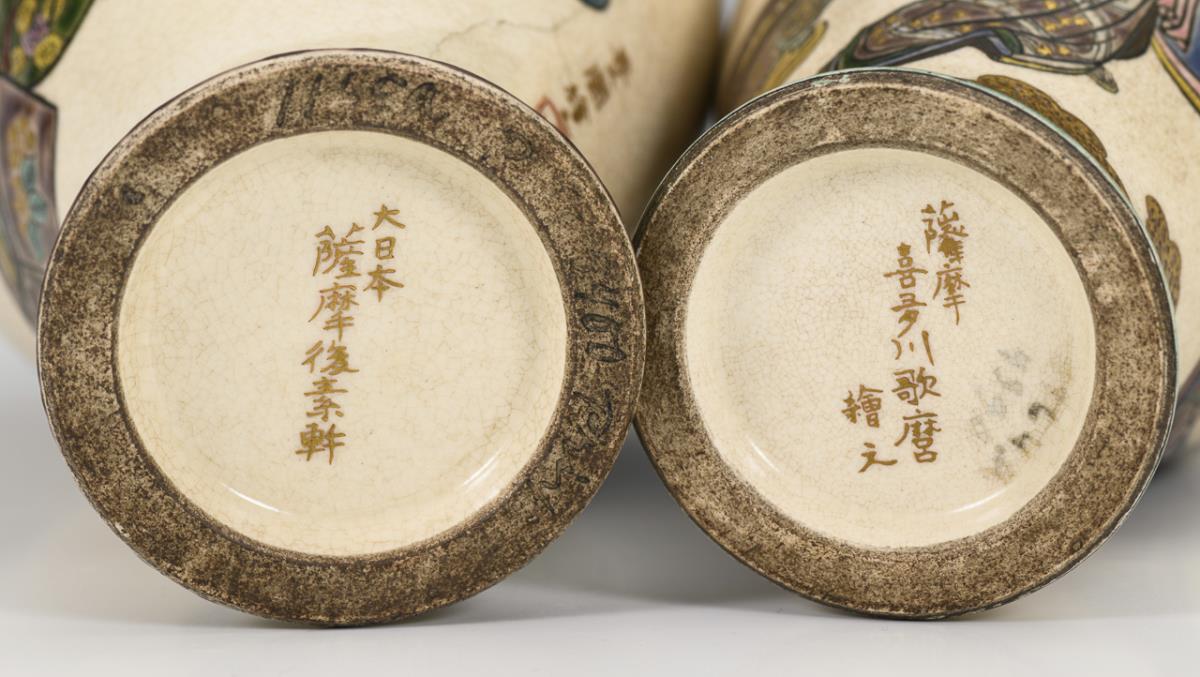 大日本
薩摩後素軒
薩摩
喜多川歌麿
繪之